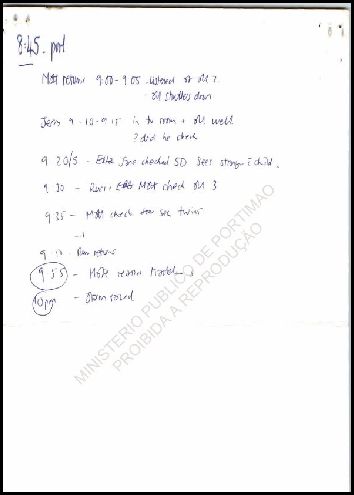 8:45. pm
Matt returns 9.00-9.05 - listened at all 3
- all shutters down
Jerry 9.10-9.15 in to room + all well
? did he check
9.20/5 - Ella Jane checked 5D sees stranger & child
9.30 - Russ Ella Matt check all 3
9.35 - Matt check see twins
9.50 - Russ returns
9.55 - realised
10pm - Alarm raised
MINISTERIO PUBLICO DE PORTIMAO
PROIBIDA A REPRODUÇÃO